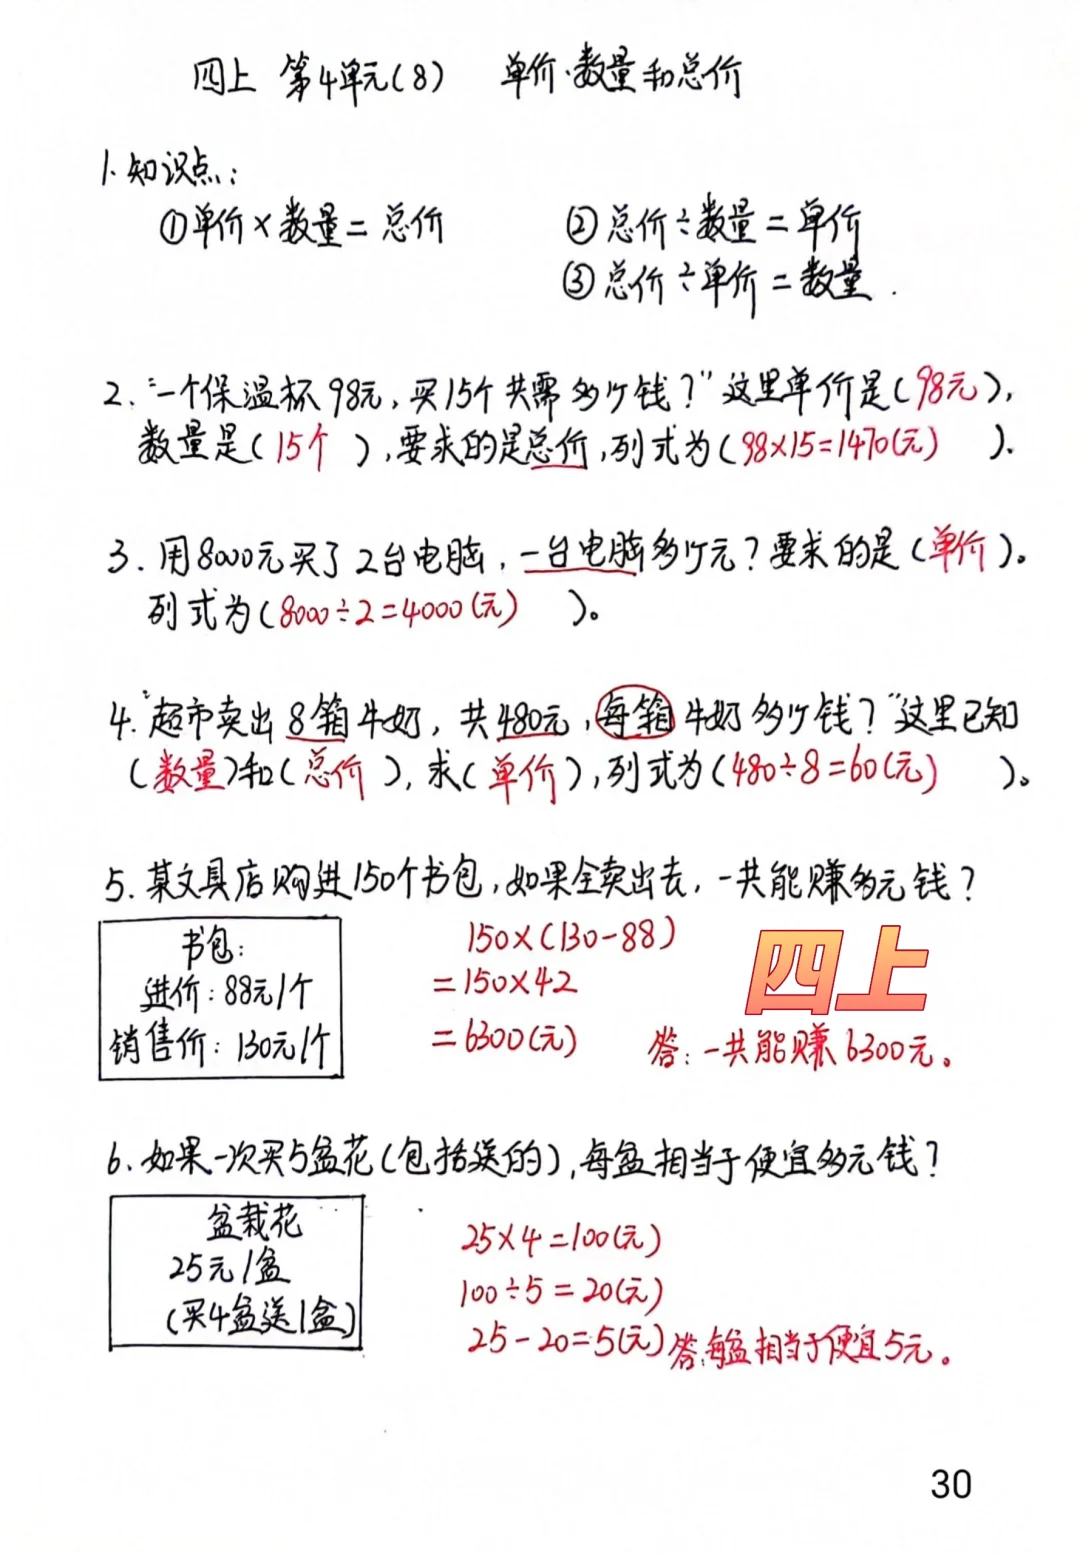 四上 第4单元(8) 单价、数量和总价
1.知识点:
①单价×数量=总价 ②总价÷数量=单价
③总价÷单价=数量.
2."一个保温杯98元,买15个共需多少钱?"这里单价是(98元),
数量是(15个),要求的是总价,列式为(98×15=1470(元)).
3.用8000元买了2台电脑,一台电脑多少元?要求的是(单价)。
列式为(8000÷2=4000(元))。
4."超市卖出8箱牛奶,共480元,每箱牛奶多少钱?"这里已知
(数量)和(总价),求(单价),列式为(480÷8=60(元))。
5.某文具店购进150个书包,如果全卖出去,一共能赚多元钱?
书包:
进价:88元/个
销售价:130元/个
150×(130-88)
=150×42
=6300(元)
答:一共能赚6300元。
四上
6.如果一次买5盆花(包括送的),每盆相当于便宜多元钱?
盆栽花
25元/盆
(买4盆送1盒)
25×4=100(元)
100÷5=20(元)
25-20=5(元)
答:每盆相当于便宜5元。
30